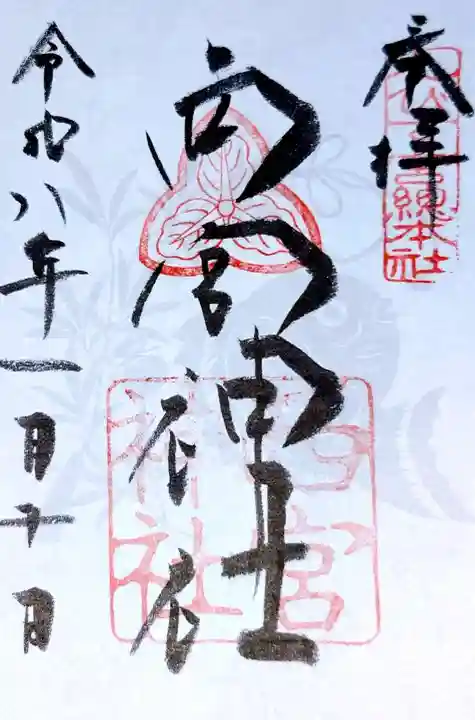 奉拝
總本社
西宮神社
西宮
神社
令和八年一月十日